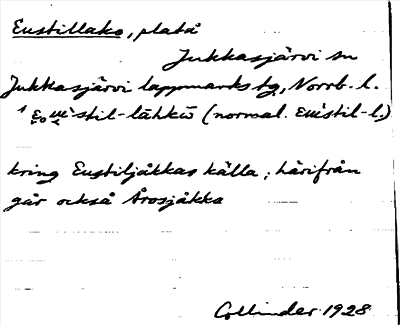 Eustillako, platå
Jukkasjärvi sn
Jukkasjärvi lappmarks tg, Norrb. l.
kring Eustiljåkkas källa; härifrån
går också Årosjåkka
Collinder 1928